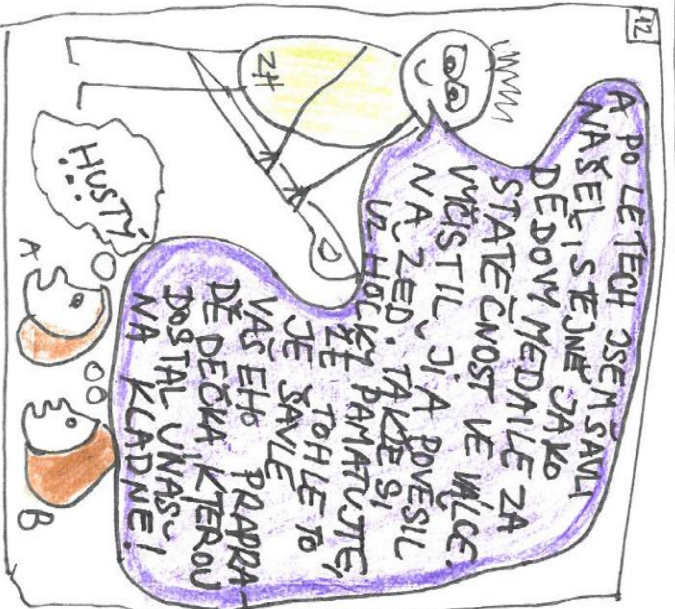 12
A PO LETECH JSEM ŠAVLI
NAŠEL I STEJNĚ JAKO
DĚDOVY MEDAILE ZA
STATEČNOST VE VÁLCE.
VYČISTIL JI A POVĚSIL
NA ZEĎ. TAKŽE SI
UŽ HOCKY PAMATUJTE,
ŽE TOHLE TO
JE ŠAVLE
VAŠEHO PRAPRA-
DĚDEČKA KTEROU
DOSTAL U NÁS
NA KLADNĚ!
ZH
HUSTÝ!
A
B